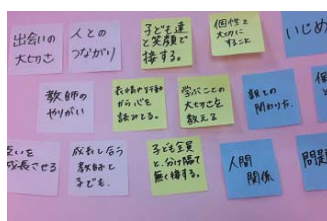 出会いの
大切さ
人との
つながり
子ども達
と笑顔で
接する。
個性を
大切に
すること
いじめ
教師の
やりがい
表情や行動
から心を
読みとる。
学ぶことの
大切さを
教える
親との
関わり方.
互いを
成長させる
成長し合う
教師と
子ども.
子ども全員
と、分け隔て
無く接する。
人間
関係
問題